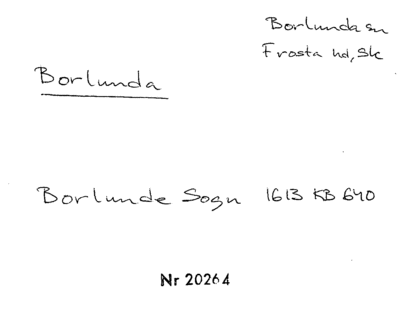 Borlunda sn
Frosta hd, Sk
Borlunda
Borlunde Sogn 1613 KB 640
Nr 20264